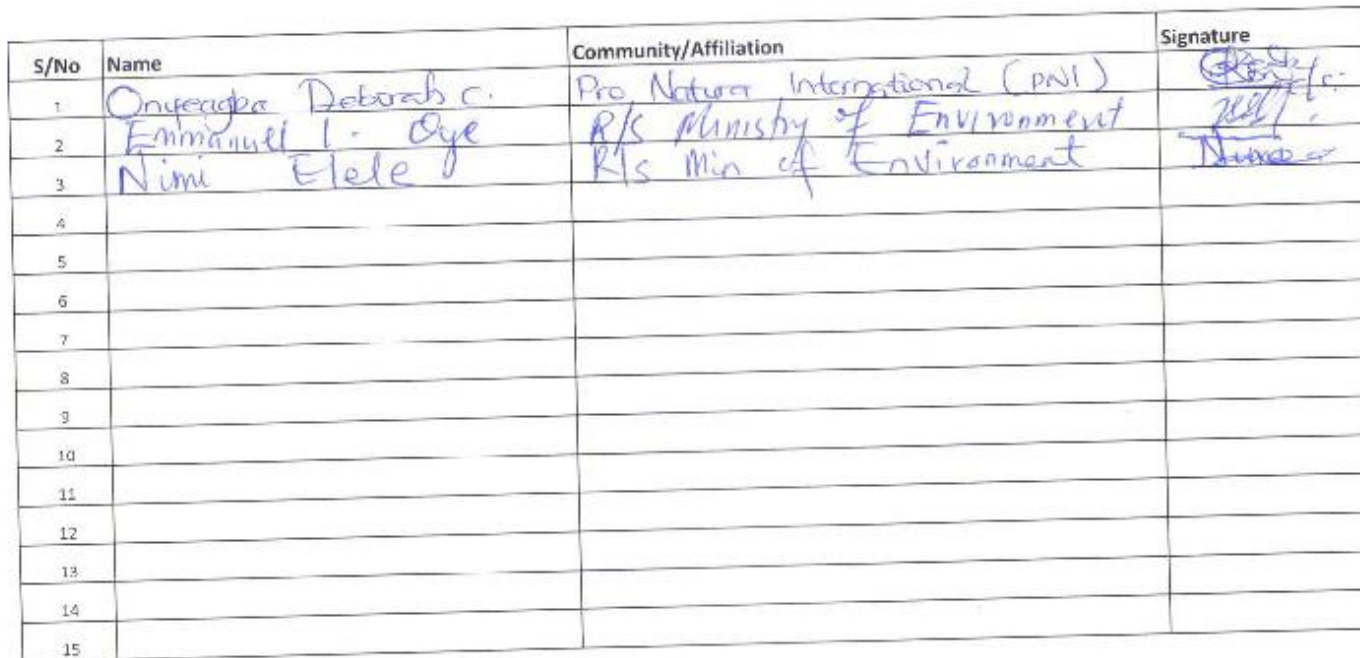 S/No Name Community/Affiliation Signature
1 Onyeagba Deborah C. Pro Natura International (PNI)
2 Emmanuel I. Oye R/S Ministry of Environment
3 Nimi Elele R/s Min of Environment
4
5
6
7
8
9
10
11
12
13
14
15